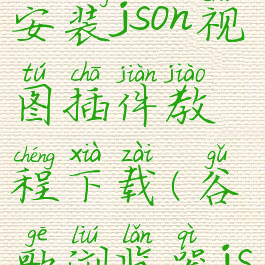 安装json视
tú chā jiàn jiào
图插件教
chéng xià zài gǔ
程下载(谷
gē liú lǎn qì
歌浏览器js